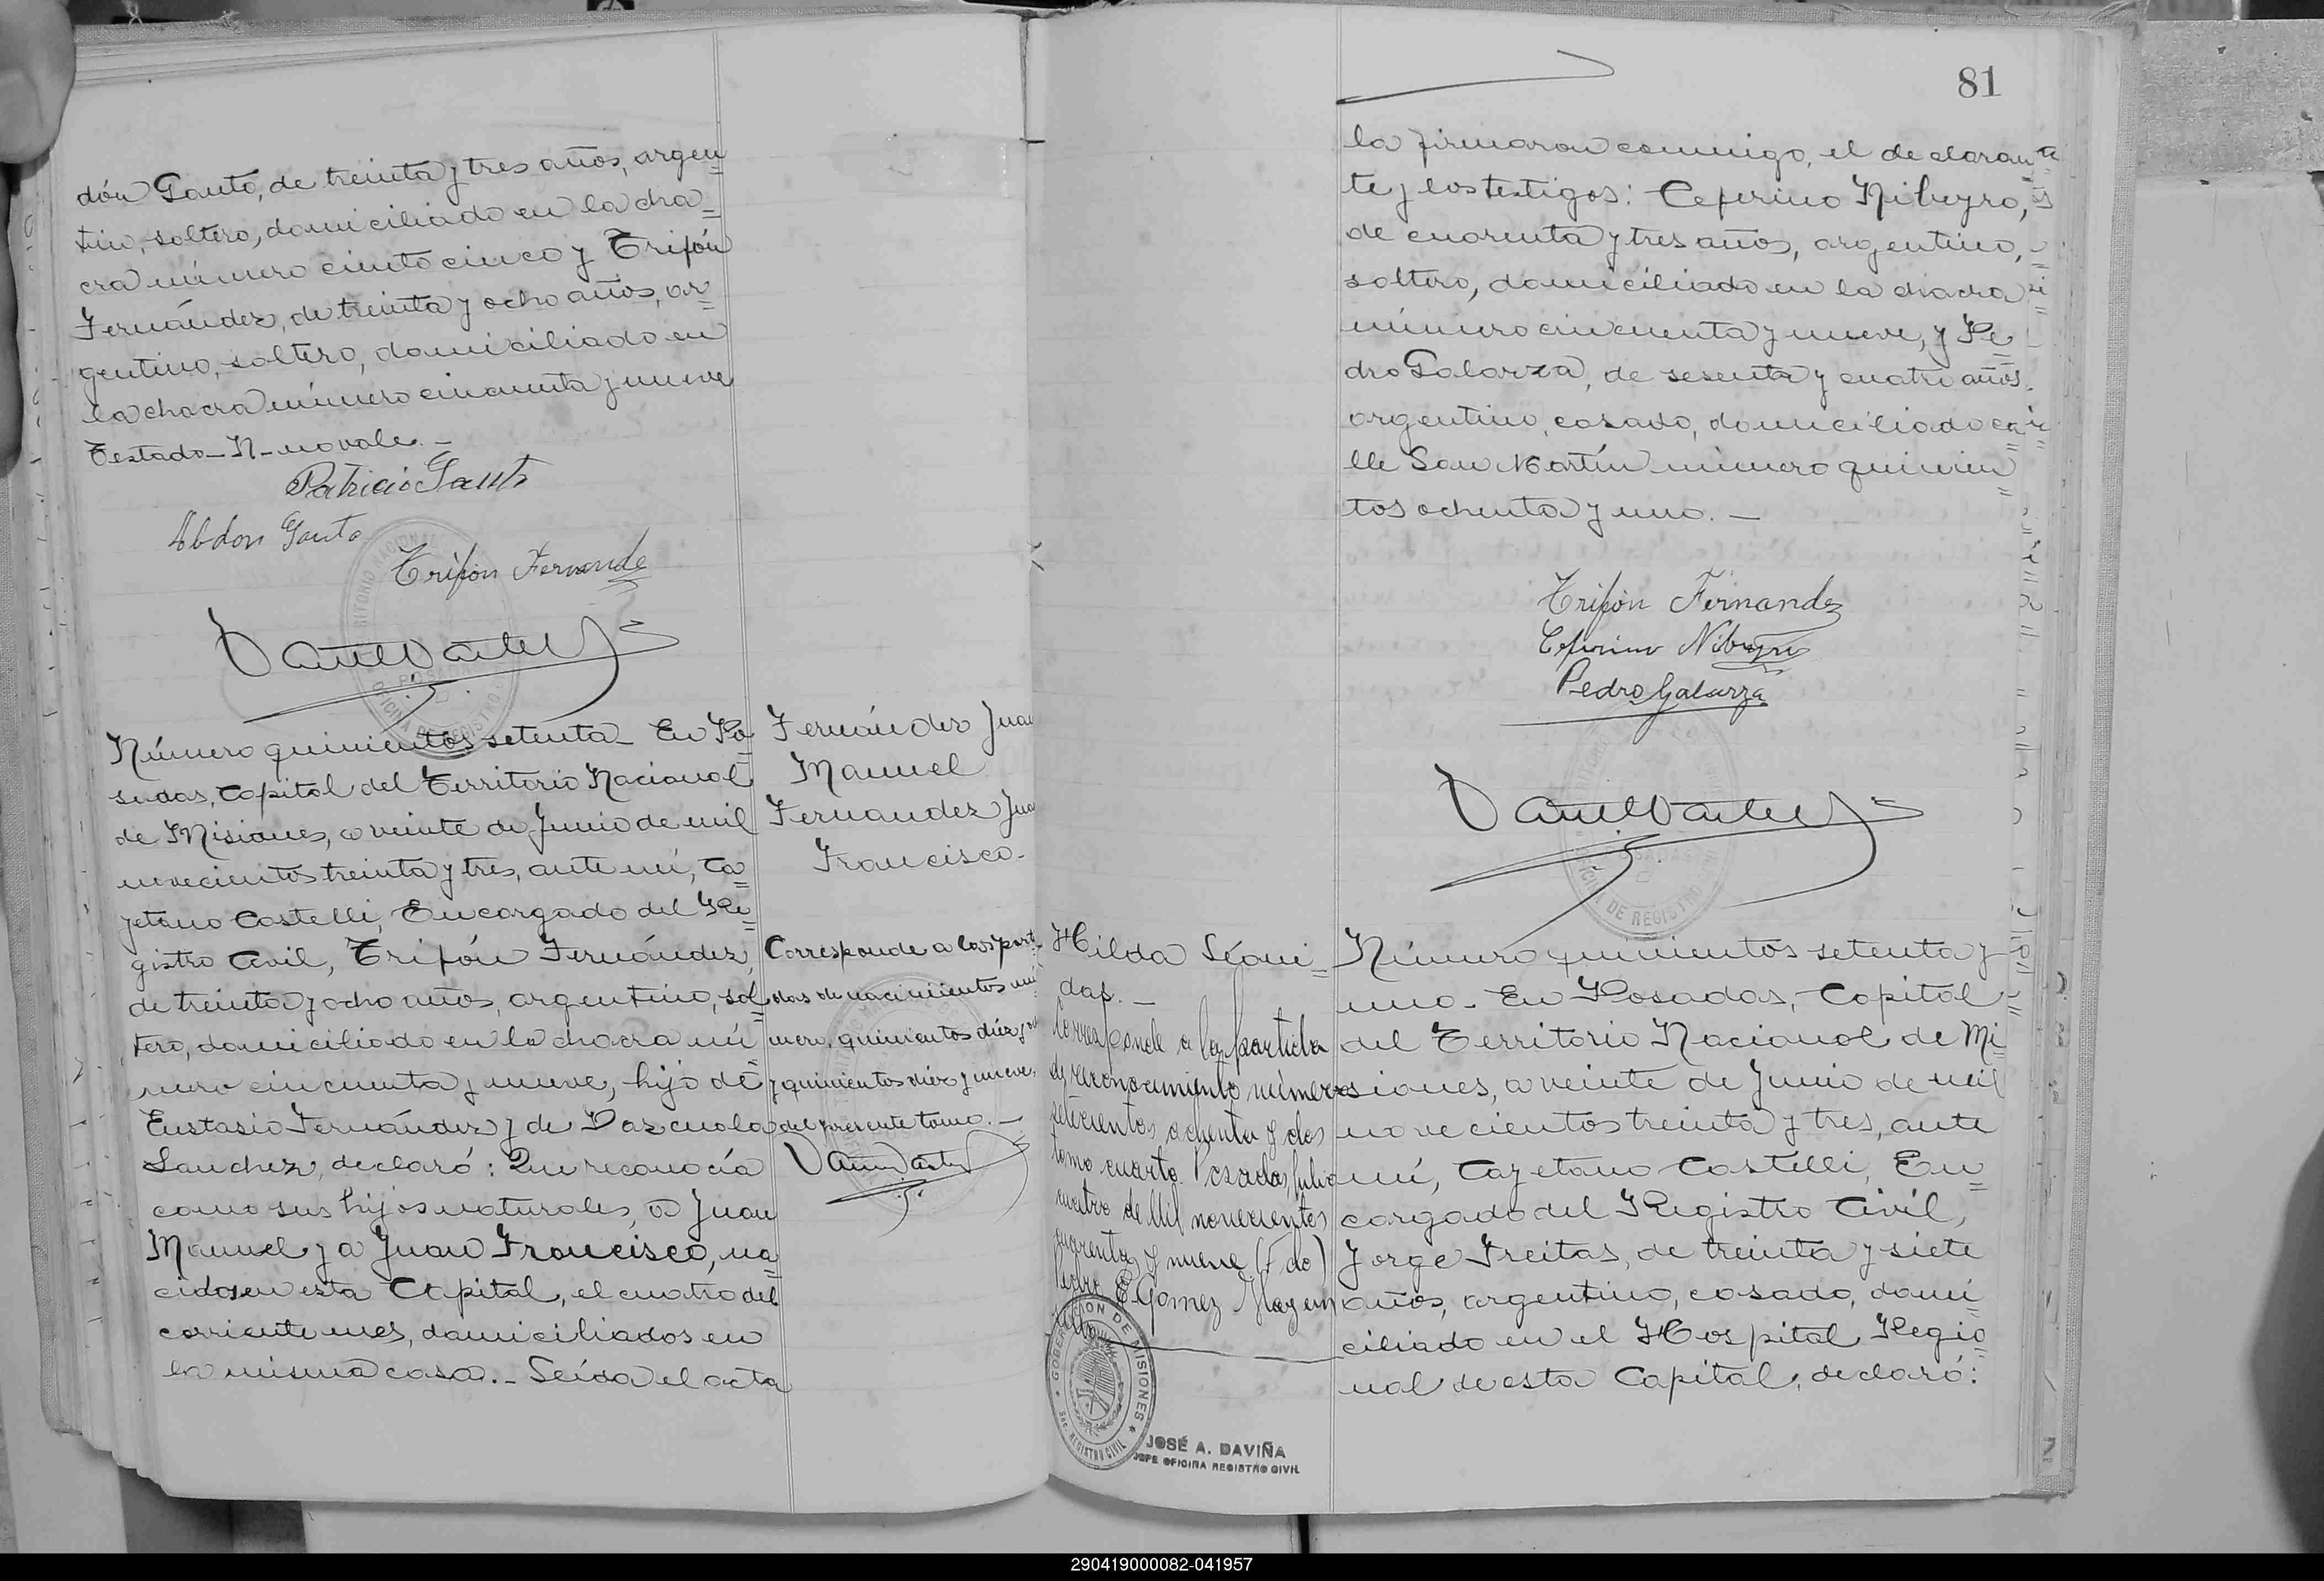 dón Gauto, de treinta y tres años, argen=
tino, soltero, domiciliado en la cha=
cra número ciento cinco y Trifón
Fernández, de treinta y ocho años, ar=
gentino, soltero, domiciliado en
la chacra número cincuenta y nueve
Testado_N_no vale._
Patricio Gauto
Abdon Gauto
Trifón Fernandez
Número quinientos setenta_ En Po=
sadas, Capital del Territorio Nacional
de Misiones, a veinte de Junio de mil
novecientos treinta y tres, ante mí, Ca=
yetano Castelli, Encargado del Re=
gistro Civil, Trifón Fernández,
de treinta y ocho años, argentino, sol=
tero, domiciliado en la chacra nú=
mero cincuenta y nueve, hijo de
Eustasio Fernández y de Pascuala
Sanchez, declaró: Que reconocía
como sus hijos naturales, a Juan
Manuel y a Juan Francisco, na=
cidos en esta Capital, el cuatro del
corriente mes, domiciliados en
la misma casa._ Leída el acta
Fernández Juan
Manuel
Fernandez Juan
Francisco-
Corresponde a las parti-
das de nacimientos nú
mero, quinientos diez y
y quinientos diez y nueve,
del presente tomo._
81
la firmaron conmigo, el declaran
te y los testigos: Ceferino Nibeyro,
de cuarenta y tres años, argentino,
soltero, domiciliado en la chacra
número cincuenta y nueve, y Pe=
dro Galarza, de sesenta y cuatro años,
argentino, casado, domiciliado ca=
lle San Martín número quinien=
tos ochenta y uno._
Trifón Fernandez
Ceferino Nibeyro
Pedro Galarza
Hilda Leoni=
das._
Corresponde a la partida
de reconocimiento número
setecientos ochenta y dos
tomo cuarto. Posadas, Julio
cuatro de Mil novecientos
cuarenta y nueve (Fdo)
Pedro E. Gomez
GOBERNACION DE MISIONES
REGISTRO CIVIL
JOSÉ A. DAVIÑA
JEFE OFICINA REGISTRO CIVIL
Número quinientos setenta y
uno_ En Posadas, Capital
del Territorio Nacional de Mi=
siones, a veinte de Junio de mil
novecientos treinta y tres, ante
mí, Cayetano Castelli, En=
cargado del Registro Civil,
Jorge Freitas, de treinta y siete
años, argentino, casado, domi=
ciliado en el Hospital Regio=
nal de esta Capital, declaró:
290419000082-041957